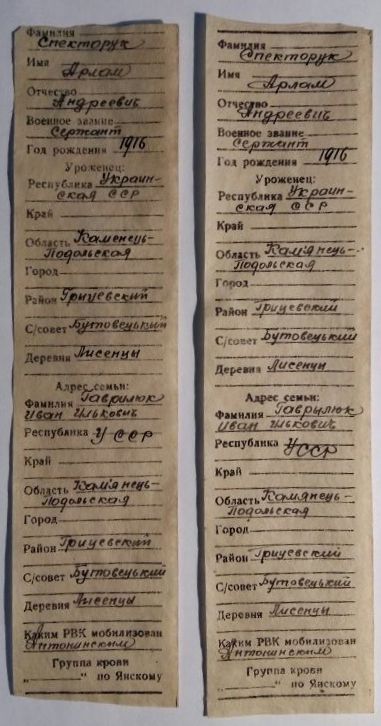 Фамилия Спекторук
Имя Арлам
Отчество Андреевич
Военное звание Сержант
Год рождения 1916
Уроженец:
Республика Украин-
ская ССР
Край
Область Каменець-
Подольская
Город
Район Грицевский
С/совет Бутовецький
Деревня Лисенцы
Адрес семьи:
Фамилия Гаврилюк
Иван Илькович
Республика УССР
Край
Область Кам'янець-
Подольская
Город
Район Грицевский
С/совет Бутовецький
Деревня Лисенцы
Каким РВК мобилизован
Антонинским
Группа крови
„ “ по Янскому
Фамилия Спекторук
Имя Арлам
Отчество Андреевич
Военное звание Сержант
Год рождения 1916
Уроженец:
Республика Украин-
ская ССР
Край
Область Кам'янець-
Подольская
Город
Район Грицевский
С/совет Бутовецький
Деревня Лисенцы
Адрес семьи:
Фамилия Гаврылюк
Иван Илькович
Республика УССР
Край
Область Камянець-
Подольская
Город
Район Грицевский
С/совет Бутовецький
Деревня Лисенцы
Каким РВК мобилизован
Антонинским
Группа крови
„ “ по Янскому